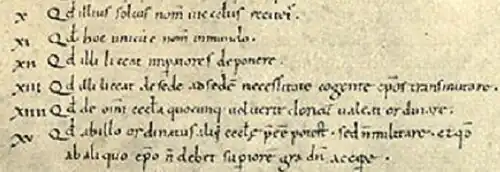 x Qd illius solius nom̄ in ecclīis recitet᷑.
xi Qd hoc unicū ē nom̄ in mundo.
xii Qd illi liceat imp̄atores deponere.
xiii Qd illi liceat de sede ad sedē necessitate cogente ep̄os transmutare.
xiiii Qd de om̄i eccl̄a quocunq; voluerit clericū valeat ordinare.
xv Qd ab illo ordinatus alii eccl̄ę p̄eē potest, sed n̄ militare. et qd̄
ab aliquo ep̄o n̄ debet sup̄iorē gradū accipe.